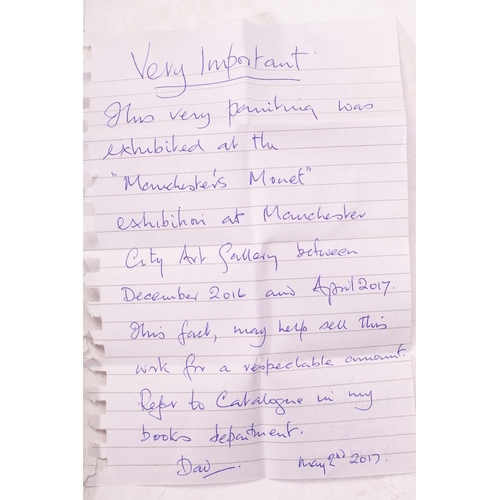 Very Important.
This very painting was
exhibited at the
"Manchester's Monet"
exhibition at Manchester
City Art Gallery between
December 2016 and April 2017.
This fact, may help sell this
work for a respectable amount.
Refer to Catalogue in my
books department.
Dad. May 2nd 2017.